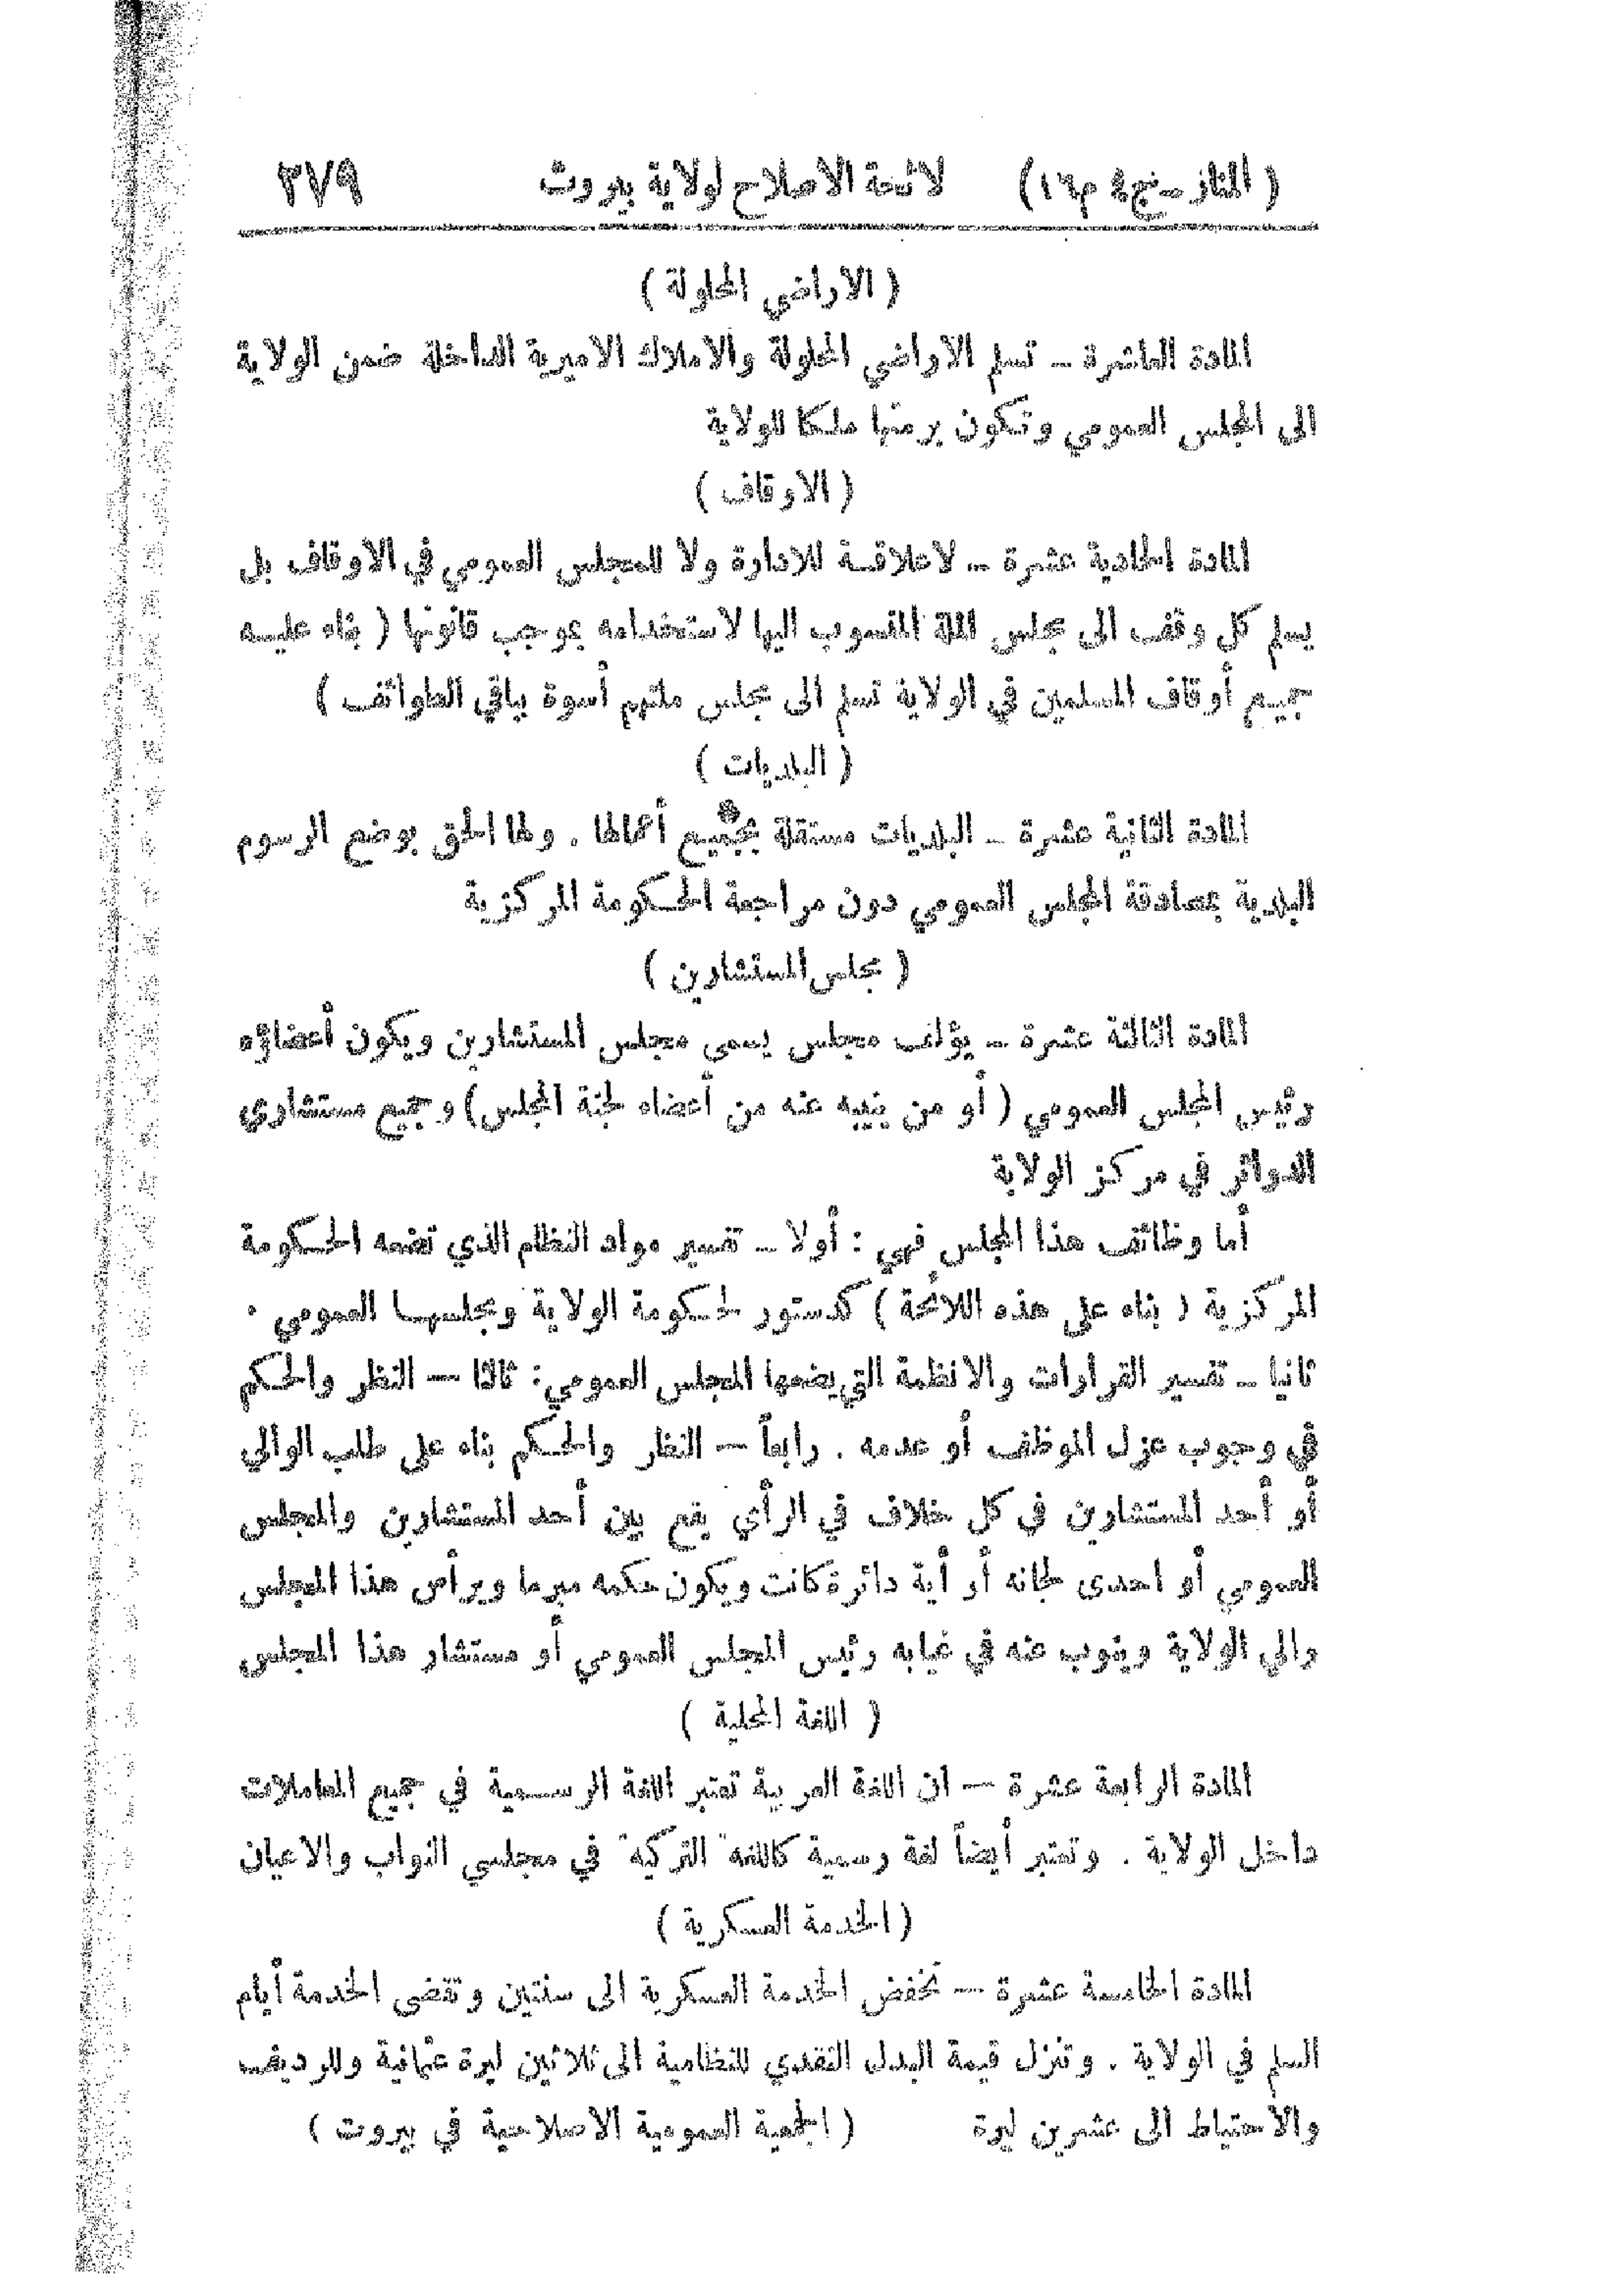 ( المنار – ج ٤ م ١٦ ) لائحة الاصلاح لولاية بيروت ٢٧٩
( الاراضي المحلولة )
المادة العاشرة – تسلم الاراضي المحلولة والاملاك الاميرية الداخلة ضمن الولاية
الى المجلس العمومي وتكون برمتها ملكا للولاية
( الاوقاف )
المادة الحادية عشرة – لاعلاقة للادارة ولا للمجلس العمومي في الاوقاف بل
يسلم كل وقف الى مجلس الملة المنسوب اليها لاستخدامه بموجب قانونها ( بناء عليه
جميع أوقاف المسلمين في الولاية تسلم الى مجلس ملتهم أسوة بباقي الطوائف )
( البلديات )
المادة الثانية عشرة – البلديات مستقلة بجميع أعمالها . ولها الحق بوضع الرسوم
البلدية بمصادقة المجلس العمومي دون مراجعة الحكومة المركزية
( مجلس المستشارين )
المادة الثالثة عشرة – يؤلف مجلس يسمى مجلس المستشارين ويكون أعضاؤه
رئيس المجلس العمومي ( أو من ينيبه عنه من أعضاء لجنة المجلس ) وجميع مستشاري
الدوائر في مركز الولاية
أما وظائف هذا المجلس فهي : أولا – تفسير مواد النظام الذي تضعه الحكومة
المركزية ( بناء على هذه اللائحة ) كدستور لحكومة الولاية ومجلسها العمومي .
ثانيا – تفسير القرارات والانظمة التي يضعها المجلس العمومي : ثالثا — النظر والحكم
في وجوب عزل الموظف أو عدمه . رابعاً — النظر والحكم بناء على طلب الوالي
أو أحد المستشارين في كل خلاف في الرأي يقع بين أحد المستشارين والمجلس
العمومي أو احدى لجانه أو أية دائرة كانت ويكون حكمه مبرما ويرأس هذا المجلس
والي الولاية وينوب عنه في غيابه رئيس المجلس العمومي أو مستشار هذا المجلس
( اللغة المحلية )
المادة الرابعة عشرة — ان اللغة العربية تعتبر اللغة الرسمية في جميع المعاملات
داخل الولاية . وتعتبر أيضاً لغة رسمية كاللغة التركية في مجلسي النواب والاعيان
( الخدمة العسكرية )
المادة الخامسة عشرة — تخفض الخدمة العسكرية الى سنتين وتقضى الخدمة أيام
السلم في الولاية . وتنزل قيمة البدل النقدي للنظامية الى ثلاثين ليرة عثمانية وللرديف
والاحتياط الى عشرين ليرة ( الجمعية العمومية الاصلاحية في بيروت )